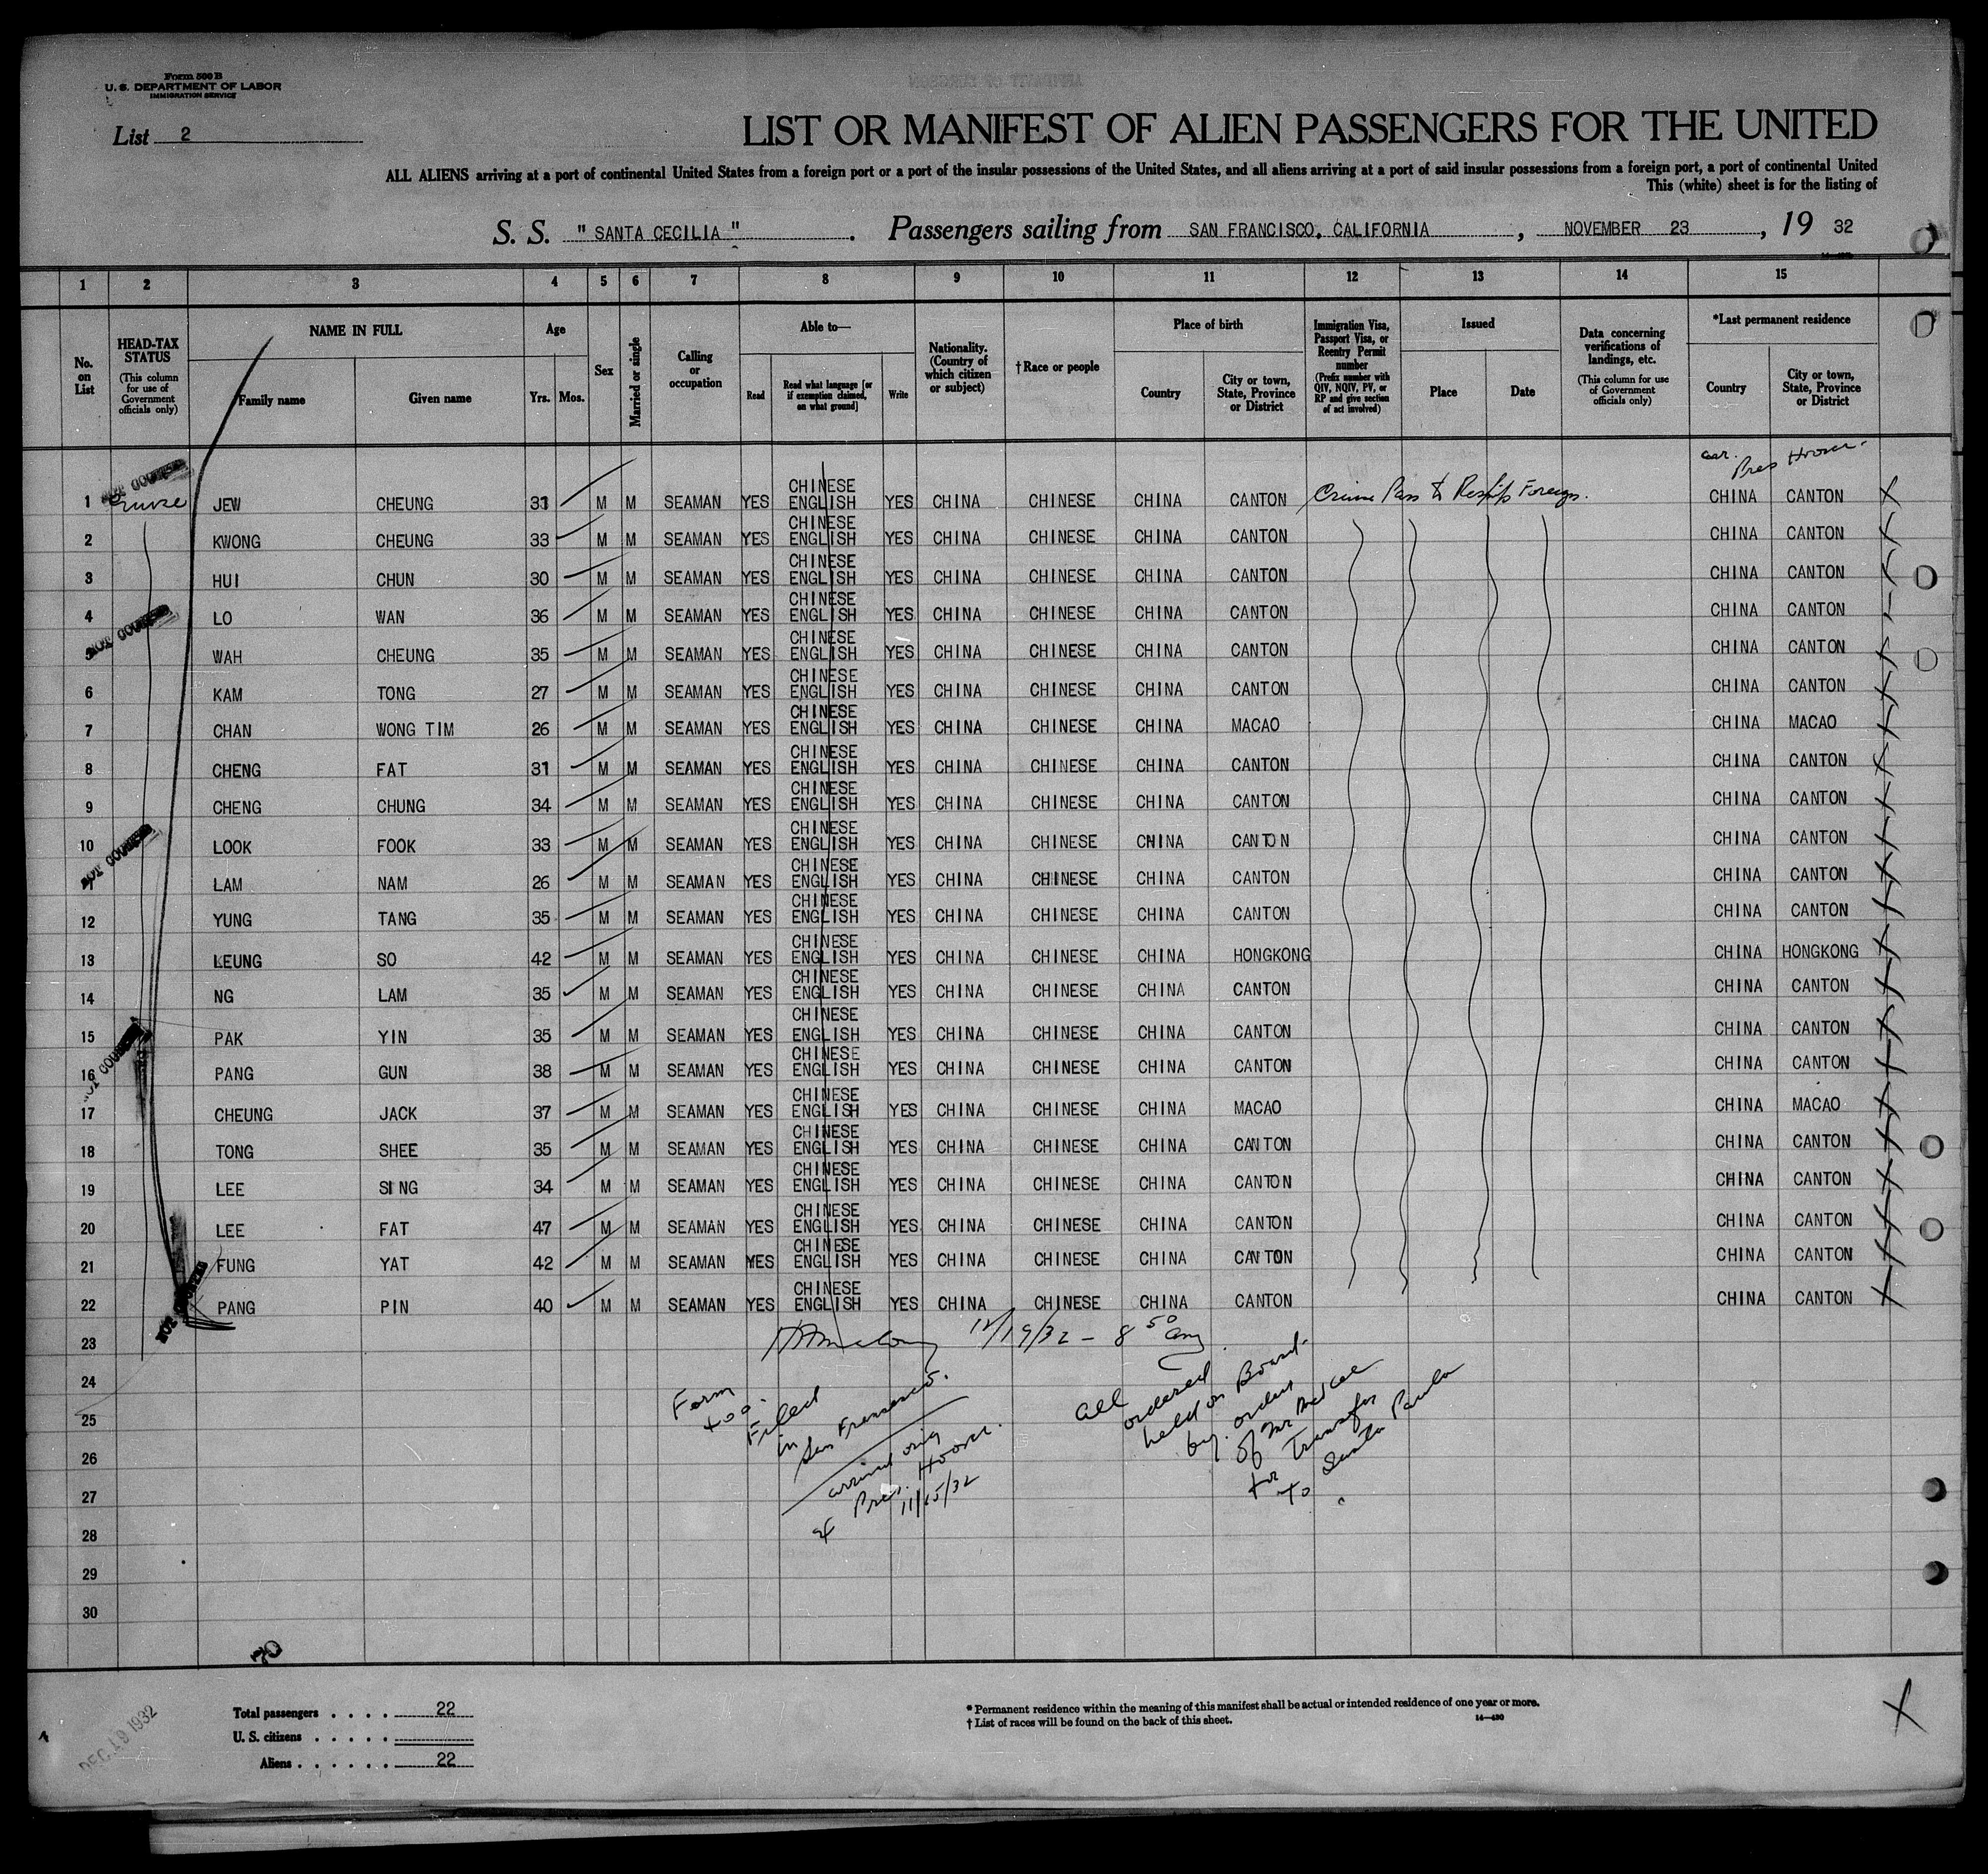 Form 500 B
U. S. DEPARTMENT OF LABOR
IMMIGRATION SERVICE
List 2
LIST OR MANIFEST OF ALIEN PASSENGERS FOR THE UNITED
ALL ALIENS arriving at a port of continental United States from a foreign port or a port of the insular possessions of the United States, and all aliens arriving at a port of said insular possessions from a foreign port, a port of continental United
This (white) sheet is for the listing of
S. S. " SANTA CECILIA " . Passengers sailing from SAN FRANCISCO, CALIFORNIA , NOVEMBER 23 , 19 32
1 2 3 4 5 6 7 8 9 10 11 12 13 14 15
No. on List
HEAD-TAX STATUS (This column for use of Government officials only)
NAME IN FULL
Family name Given name
Age
Yrs. Mos.
Sex
Married or single
Calling or occupation
Able to—
Read Read what language [or if exemption claimed, on what ground] Write
Nationality. (Country of which citizen or subject)
† Race or people
Place of birth
Country City or town, State, Province or District
Immigration Visa, Passport Visa, or Reentry Permit number (Prefix number with QIV, NQIV, PV, or RP and give section of act involved)
Issued
Place Date
Data concerning verifications of landings, etc. (This column for use of Government officials only)
*Last permanent residence
Country City or town, State, Province or District
Pres Hoover
1 JEW CHEUNG 31 M M SEAMAN YES CHINESE ENGLISH YES CHINA CHINESE CHINA CANTON Pass to Foreign. CHINA CANTON X
2 KWONG CHEUNG 33 M M SEAMAN YES CHINESE ENGLISH YES CHINA CHINESE CHINA CANTON CHINA CANTON
3 HUI CHUN 30 M M SEAMAN YES CHINESE ENGLISH YES CHINA CHINESE CHINA CANTON CHINA CANTON
4 LO WAN 36 M M SEAMAN YES CHINESE ENGLISH YES CHINA CHINESE CHINA CANTON CHINA CANTON
5 WAH CHEUNG 35 M M SEAMAN YES CHINESE ENGLISH YES CHINA CHINESE CHINA CANTON CHINA CANTON
6 KAM TONG 27 M M SEAMAN YES CHINESE ENGLISH YES CHINA CHINESE CHINA CANTON CHINA CANTON
7 CHAN WONG TIM 26 M M SEAMAN YES CHINESE ENGLISH YES CHINA CHINESE CHINA MACAO CHINA MACAO
8 CHENG FAT 31 M M SEAMAN YES CHINESE ENGLISH YES CHINA CHINESE CHINA CANTON CHINA CANTON
9 CHENG CHUNG 34 M M SEAMAN YES CHINESE ENGLISH YES CHINA CHINESE CHINA CANTON CHINA CANTON
10 LOOK FOOK 33 M M SEAMAN YES CHINESE ENGLISH YES CHINA CHINESE CHINA CANTON CHINA CANTON
LAM NAM 26 M M SEAMAN YES CHINESE ENGLISH YES CHINA CHINESE CHINA CANTON CHINA CANTON
12 YUNG TANG 35 M M SEAMAN YES CHINESE ENGLISH YES CHINA CHINESE CHINA CANTON CHINA CANTON
13 LEUNG SO 42 M M SEAMAN YES CHINESE ENGLISH YES CHINA CHINESE CHINA HONGKONG CHINA HONGKONG
14 NG LAM 35 M M SEAMAN YES CHINESE ENGLISH YES CHINA CHINESE CHINA CANTON CHINA CANTON
15 PAK YIN 35 M M SEAMAN YES CHINESE ENGLISH YES CHINA CHINESE CHINA CANTON CHINA CANTON
16 PANG GUN 38 M M SEAMAN YES CHINESE ENGLISH YES CHINA CHINESE CHINA CANTON CHINA CANTON
17 CHEUNG JACK 37 M M SEAMAN YES CHINESE ENGLISH YES CHINA CHINESE CHINA MACAO CHINA MACAO
18 TONG SHEE 35 M M SEAMAN YES CHINESE ENGLISH YES CHINA CHINESE CHINA CANTON CHINA CANTON
19 LEE SING 34 M M SEAMAN YES CHINESE ENGLISH YES CHINA CHINESE CHINA CANTON CHINA CANTON
20 LEE FAT 47 M M SEAMAN YES CHINESE ENGLISH YES CHINA CHINESE CHINA CANTON CHINA CANTON
21 FUNG YAT 42 M M SEAMAN YES CHINESE ENGLISH YES CHINA CHINESE CHINA CANTON CHINA CANTON
22 PANG PIN 40 M M SEAMAN YES CHINESE ENGLISH YES CHINA CHINESE CHINA CANTON CHINA CANTON
23
24
25
26
27
28
29
30
12/19/32 - 8 50 am
Form
Filed
in
San Francisco.
arrived orig
Pres. Hoover.
11/15/32
all
ordered
held on Board.
by orders
of Mr
for Transfer
to Santa Paula
70
Total passengers . . . . 22
U. S. citizens . . . . .
Aliens . . . . . . 22
* Permanent residence within the meaning of this manifest shall be actual or intended residence of one year or more.
† List of races will be found on the back of this sheet.
14—430
DEC 19 1932
X